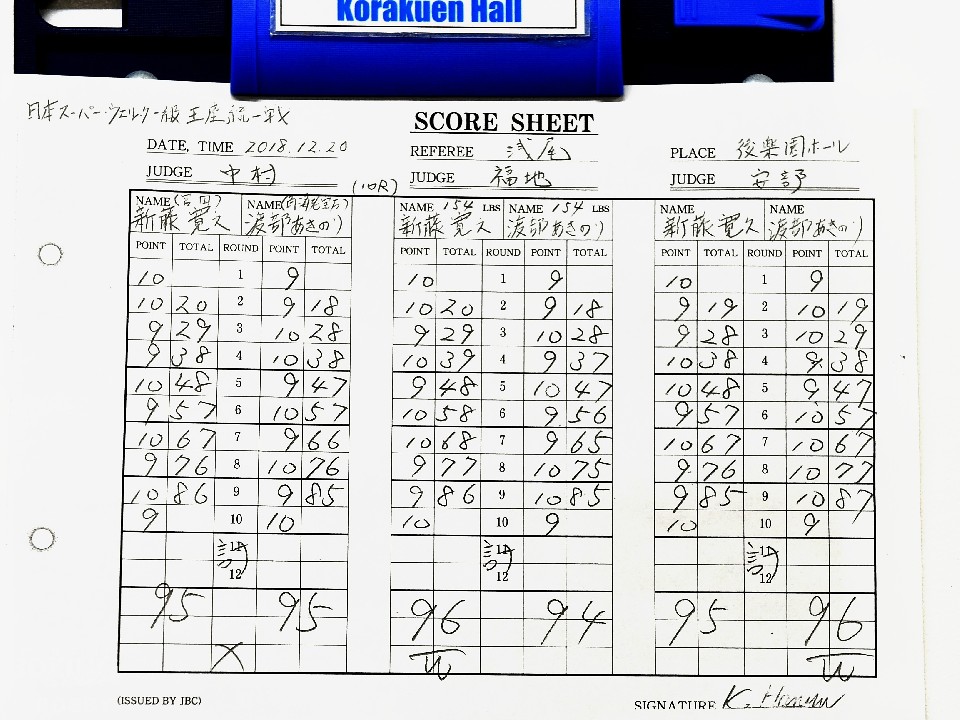 Korakuen Hall
日本スーパーウェルター級王座統一戦
SCORE SHEET
DATE, TIME 2018.12.20 REFEREE 浅尾 PLACE 後楽園ホール
JUDGE 中村 (10R) JUDGE 福地 JUDGE 安部
NAME (宮田) NAME NAME 154 LBS NAME 154 LBS NAME NAME
新藤寛久 渡部あきのり 新藤寛久 渡部あきのり 新藤寛久 渡部あきのり
POINT TOTAL ROUND POINT TOTAL POINT TOTAL ROUND POINT TOTAL POINT TOTAL ROUND POINT TOTAL
10 1 9 10 1 9 10 1 9
10 20 2 9 18 10 20 2 9 18 9 19 2 10 19
9 29 3 10 28 9 29 3 10 28 9 28 3 10 29
9 38 4 10 38 10 39 4 9 37 10 38 4 9 38
10 48 5 9 47 9 48 5 10 47 10 48 5 9 47
9 57 6 10 57 10 58 6 9 56 9 57 6 10 57
10 67 7 9 66 10 68 7 9 65 10 67 7 10 67
9 76 8 10 76 9 77 8 10 75 9 76 8 10 77
10 86 9 9 85 9 86 9 10 85 9 85 9 10 87
9 10 10 10 10 9 10 10 9
計 11 計 11 計 11
12 12 12
95 95 96 94 95 96
X W W
(ISSUED BY JBC) SIGNATURE K.